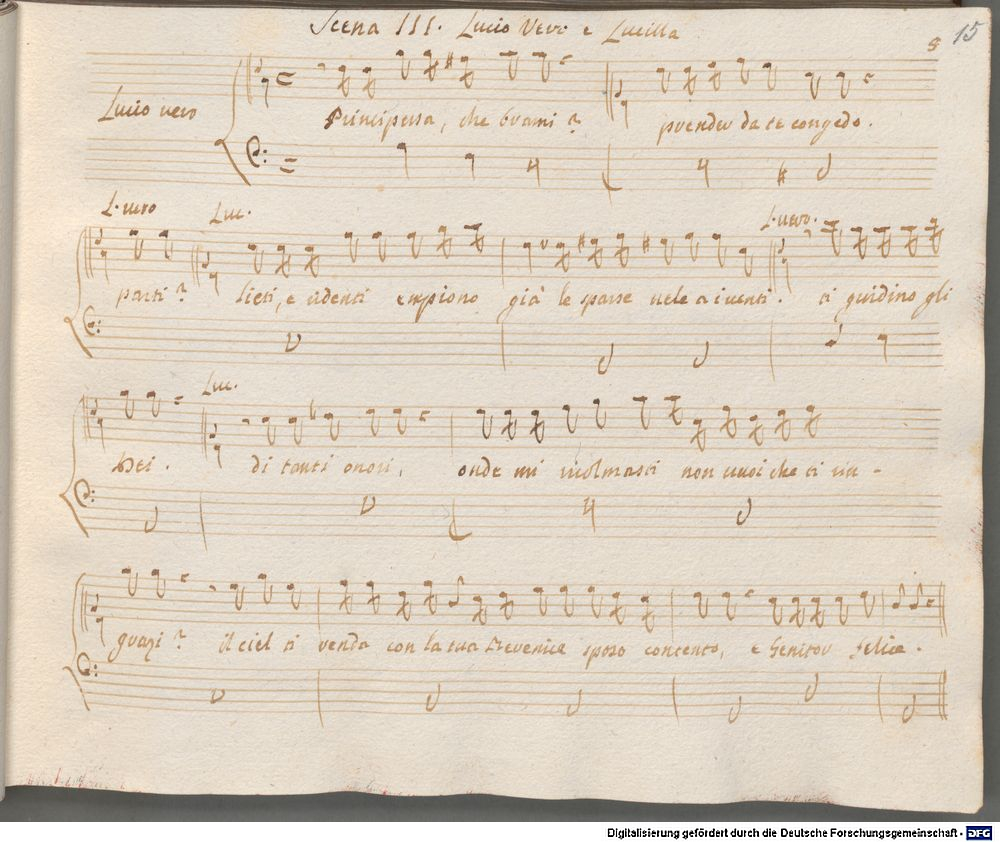 Scena III. Lucio Vero e Lucilla
8 15
Lucio vero
Principessa, che brami? prender da te congedo.
L. vero Luc. L. vero.
parti? lieti, e ridenti empiono già le sparse vele a i venti. ti guidino gli
Luc.
Dei. di tanti onori, onde mi ricolmasti non vuoi che ti rin-
grazi? il ciel ti renda con la tua Berenice sposo contento, e Genitor felice.
Digitalisierung gefördert durch die Deutsche Forschungsgemeinschaft - DFG